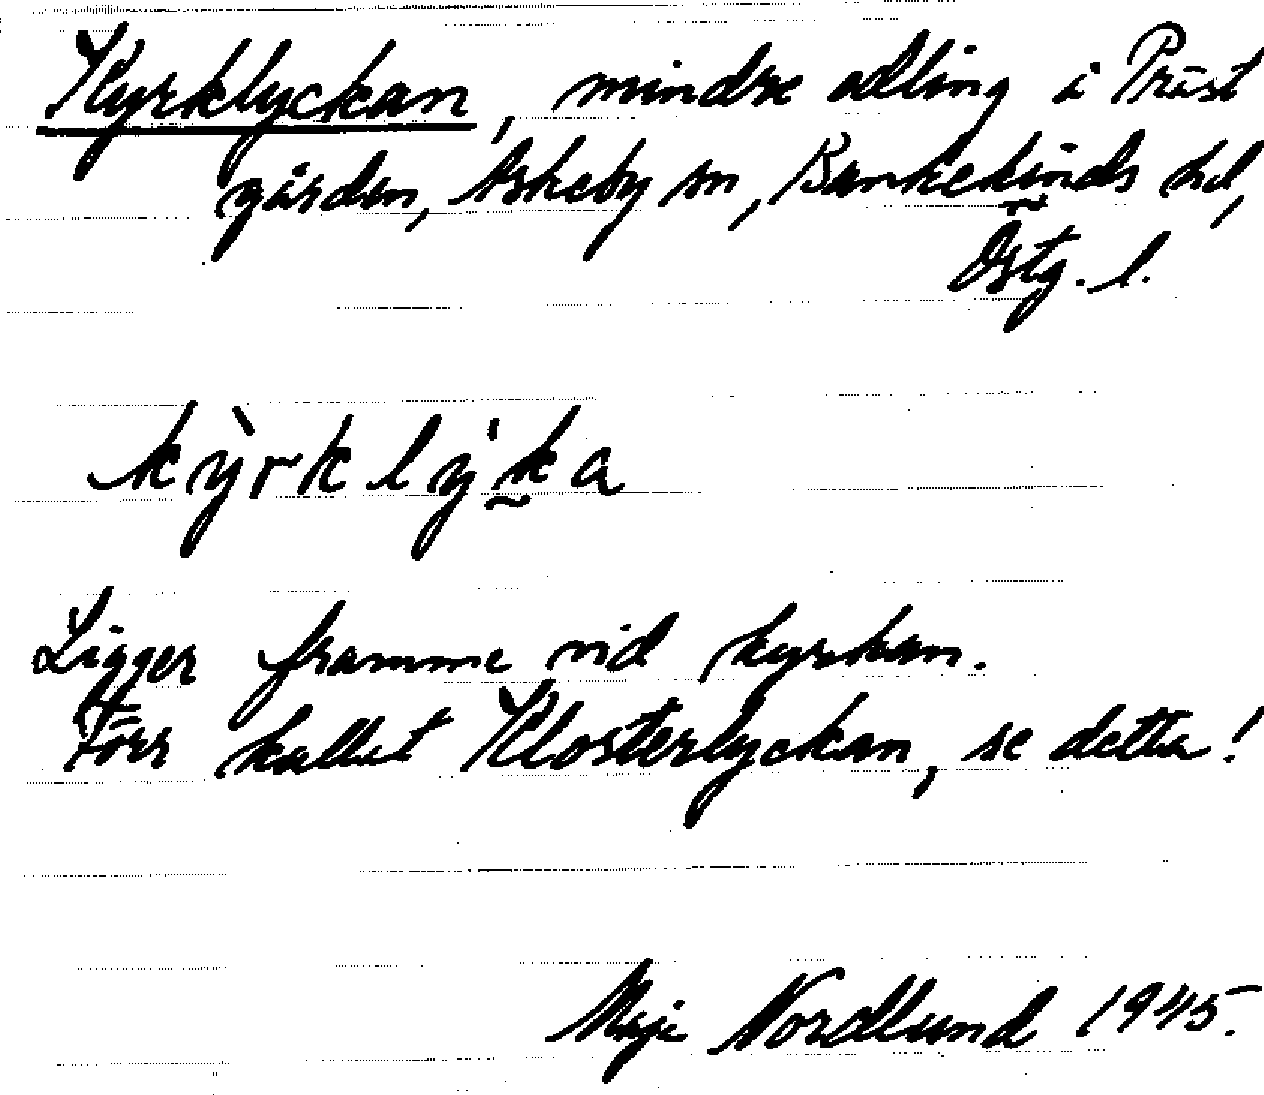 Kyrklyckan, mindre odling i Präst
gården, Askeby sn, Bankekinds hd,
Östg. l.
kỳrk lý̀k̰a
Ligger framme vid kyrkan.
Förr kallat Klosterlyckan, se detta!
Maje Nordlund 1945.